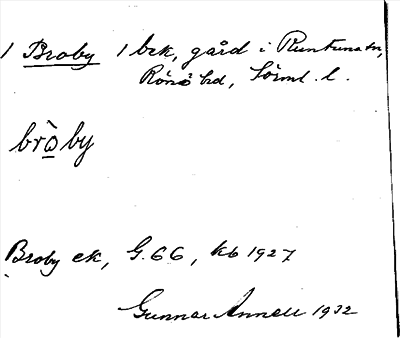 1 Broby 1 brk, gård i Runtuna sn,
Rönö hd, Sörml. l.
brò̲by
Broby ek, G. 66, kb 1927
Gunnar Annell 1932